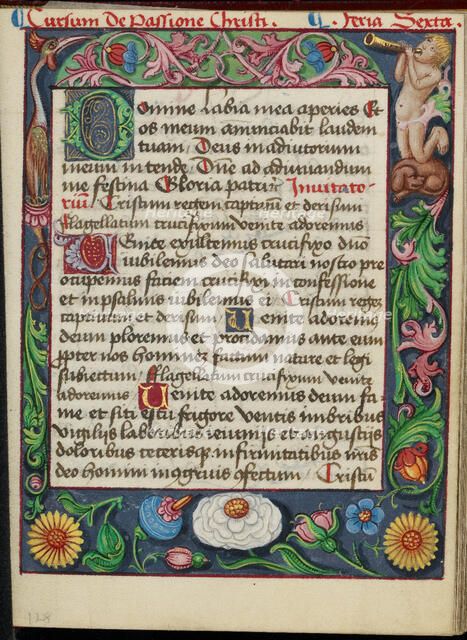 Cursum De Passione Christi. Feria Sexta.
Domine Labia mea aperies Et
os meum annunciabit laudem
tuam, Deus in adiutorium
meum intende, Dne ad adiuuandum
me festina Gloria patri: Inuitato-
riū, Cristum regem captum et derisum
flagellatum crucifixum venite adoremus
Uenite exultemus crucifixo dno
iubilemus deo salutari nostro pre
ocupemus faciem crucifixi in confessione
et in psalmis iubilemus ei Cristum regem
captum et derisum, Uenite adoremus
deum ploremus et procidamus ante eum
ppter nos hominez factum nature et legi
subiectum flagellatum crucifixum venite
adoremus Uenite adoremus deum fa-
me et siti estu frigore ventis imbribus
vigiliis laboribus ieiuniis et angustiis
doloribus ceterisque infirmitatibus nris
deo homini incongruis confectum Cristū
128